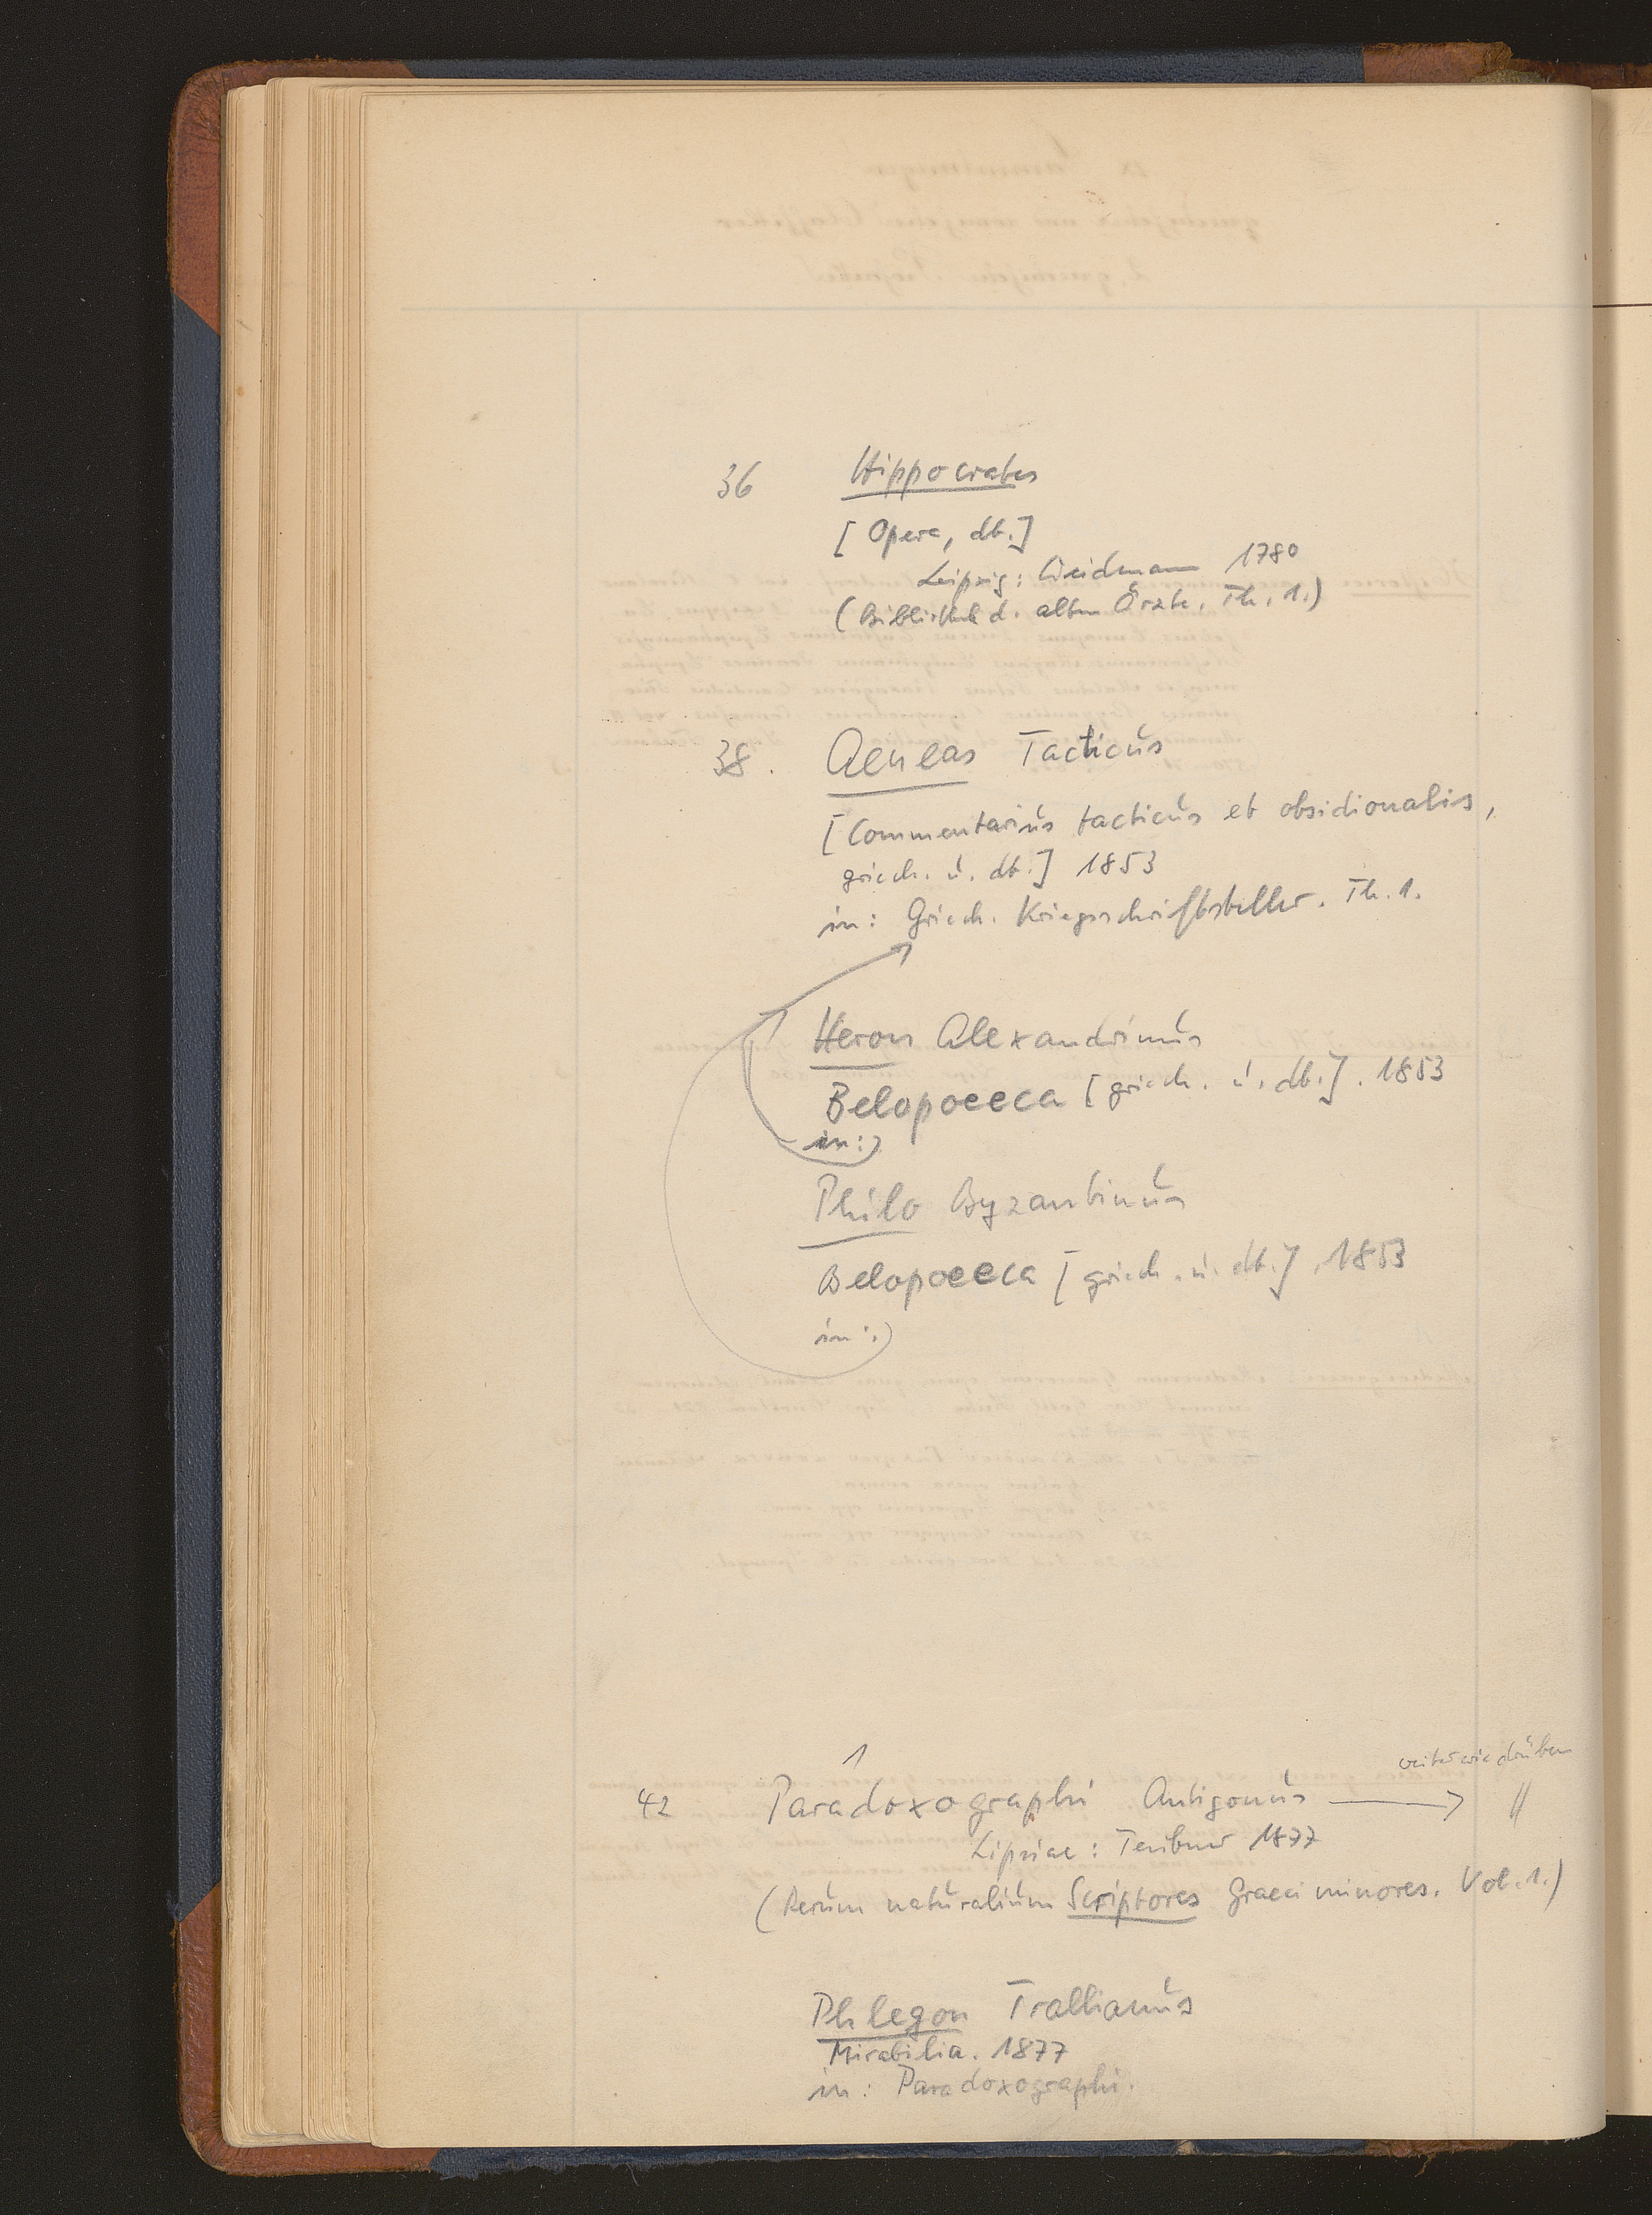 36 Hippocrates
[Opera, dt.]
Leipzig: Weidmann 1780
(Bibliothek d. alten Ärzte. Th. 1.)
38. Aeneas Tacticus
[Commentarius tacticus et obsidionalis,
griech. u. dt.] 1853
in: Griech. Kriegsschriftsteller. Th. 1.
Heron Alexandrinus
Belopoeeca [griech. u. dt.]. 1853
in:
Philo Byzantinus
Belopoeeca [griech. u. dt.]. 1853
in:
1
weiter wie drüben
42 Paradoxographi Antigonus → //
Lipsiae: Teubner 1877
(Rerum naturalium Scriptores Graeci minores. Vol. 1.)
Phlegon Trallianus
Mirabilia. 1877
in: Paradoxographi.